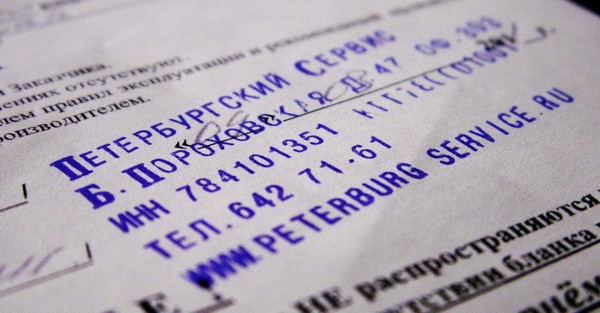 Заказчика.
ениях отсутствуют.
лем правил эксплуатации и рекомендаций
производителем.
Петербургский Сервис
Б. Пороховская Д.47 оф.303
ИНН 784101351
ТЕЛ. 642 71-61
WWW.PETERBURG SERVICE.RU
НЕ распространяются
тствии бланка